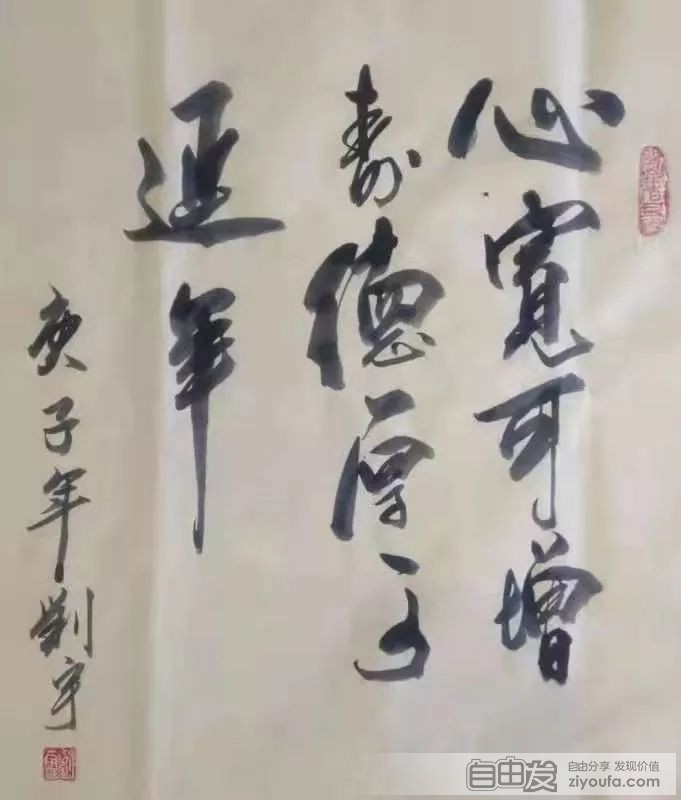 心寬可增
壽德厚可
延年
庚子年劉宇
自由发
自由分享 发现价值
ziyoufa.com